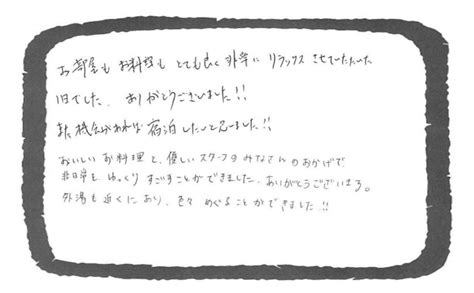 お部屋もお料理もとても良く非常にリラックスさせていただいた
1日でした。ありがとうございました!!
また機会があれば宿泊したいと思いました!!
おいしいお料理と、優しいスタッフのみなさんのおかげで、
非日常を、ゆっくりすごすことができました。ありがとうございます。
外湯も近くにあり、色々めぐることができました!!